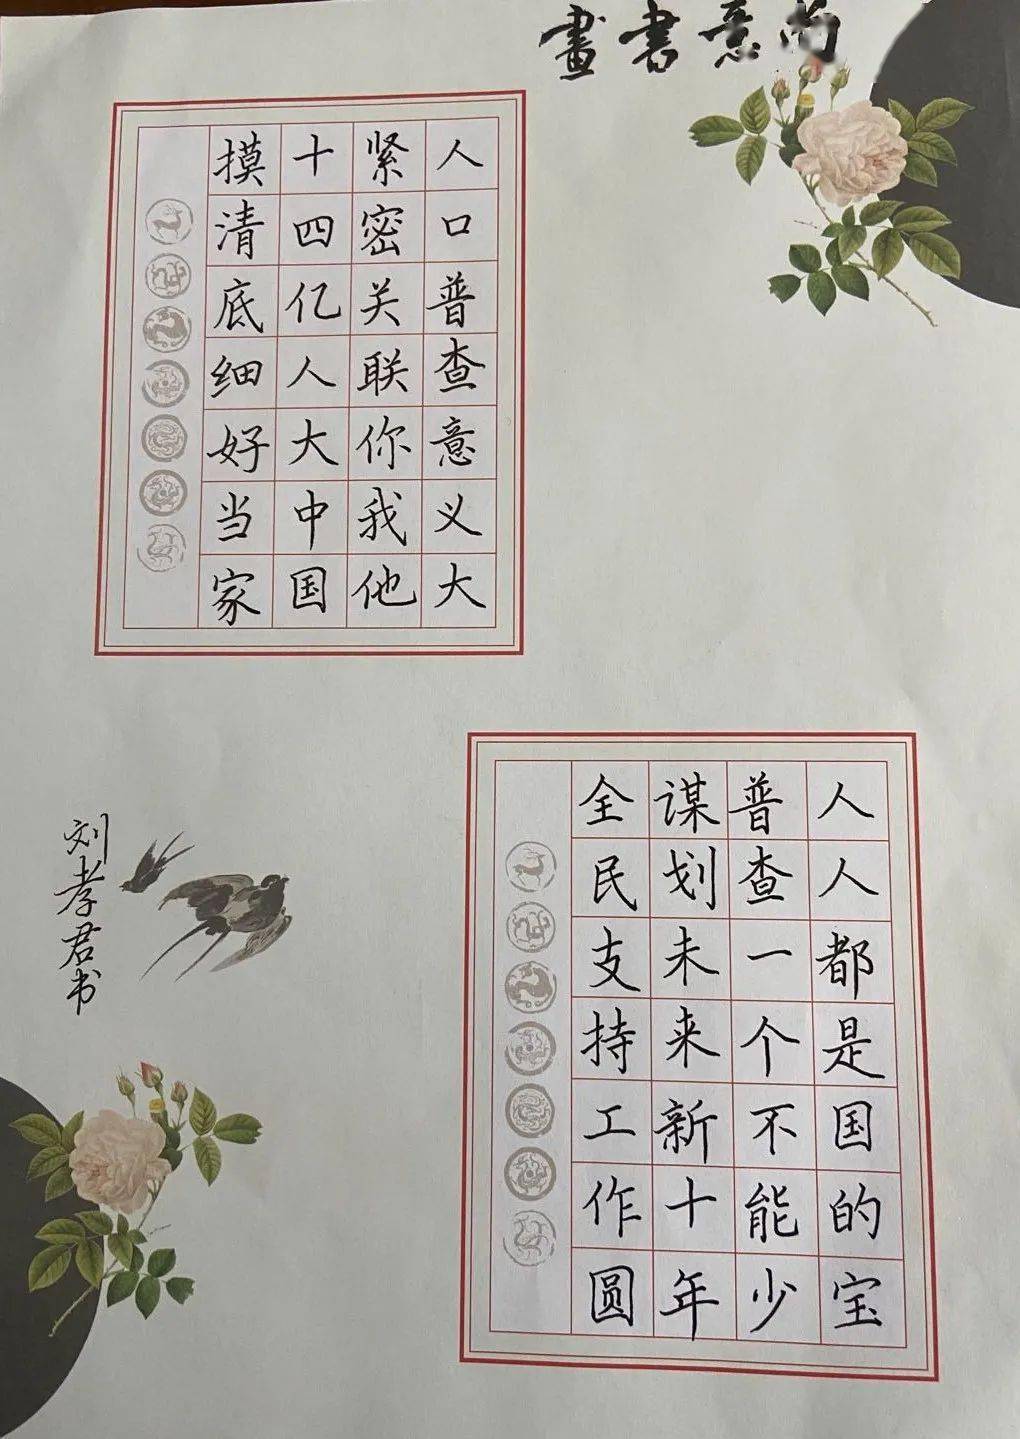 意書畫
人口普查意义大
紧密关联你我他
十四亿人大中国
摸清底细好当家
人人都是国的宝
普查一个不能少
谋划未来新十年
全民支持工作圆
刘孝君书